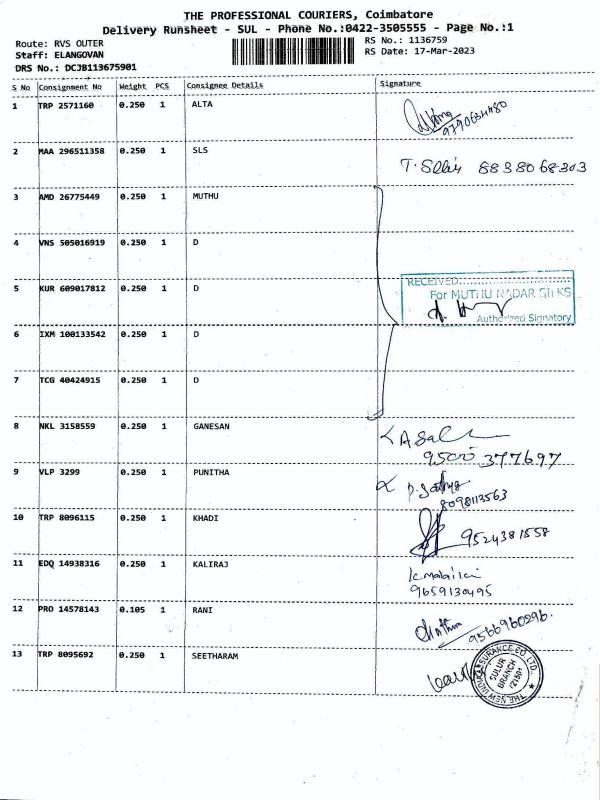 THE PROFESSIONAL COURIERS, Coimbatore
Delivery Runsheet - SUL - Phone No.:0422-3505555 - Page No.:1
Route: RVS OUTER
RS No.: 1136759
Staff: ELANGOVAN
RS Date: 17-Mar-2023
DRS No.: DCJB113675901
S No Consignment No Weight PCS Consignee Details Signature
1 TRP 2571160 0.250 1 ALTA
9790634480
2 MAA 296511358 0.250 1 SLS
T. 8838068303
3 AMD 26775449 0.250 1 MUTHU
4 VNS 505016919 0.250 1 D
5 KUR 609017812 0.250 1 D
RECEIVED
For MUTHU NADAR SILKS
Authorized Signatory
6 IXM 100133542 0.250 1 D
7 TCG 40424915 0.250 1 D
8 NKL 3158559 0.250 1 GANESAN
9500 377697
9 VLP 3299 0.250 1 PUNITHA
8098113563
10 TRP 8096115 0.250 1 KHADI
9524381558
11 EDQ 14938316 0.250 1 KALIRAJ
9659130495
12 PRO 14578143 0.105 1 RANI
9566960296
13 TRP 8095692 0.250 1 SEETHARAM
THE NEW INDIA ASSURANCE CO. LTD.
SULUR
BRANCH